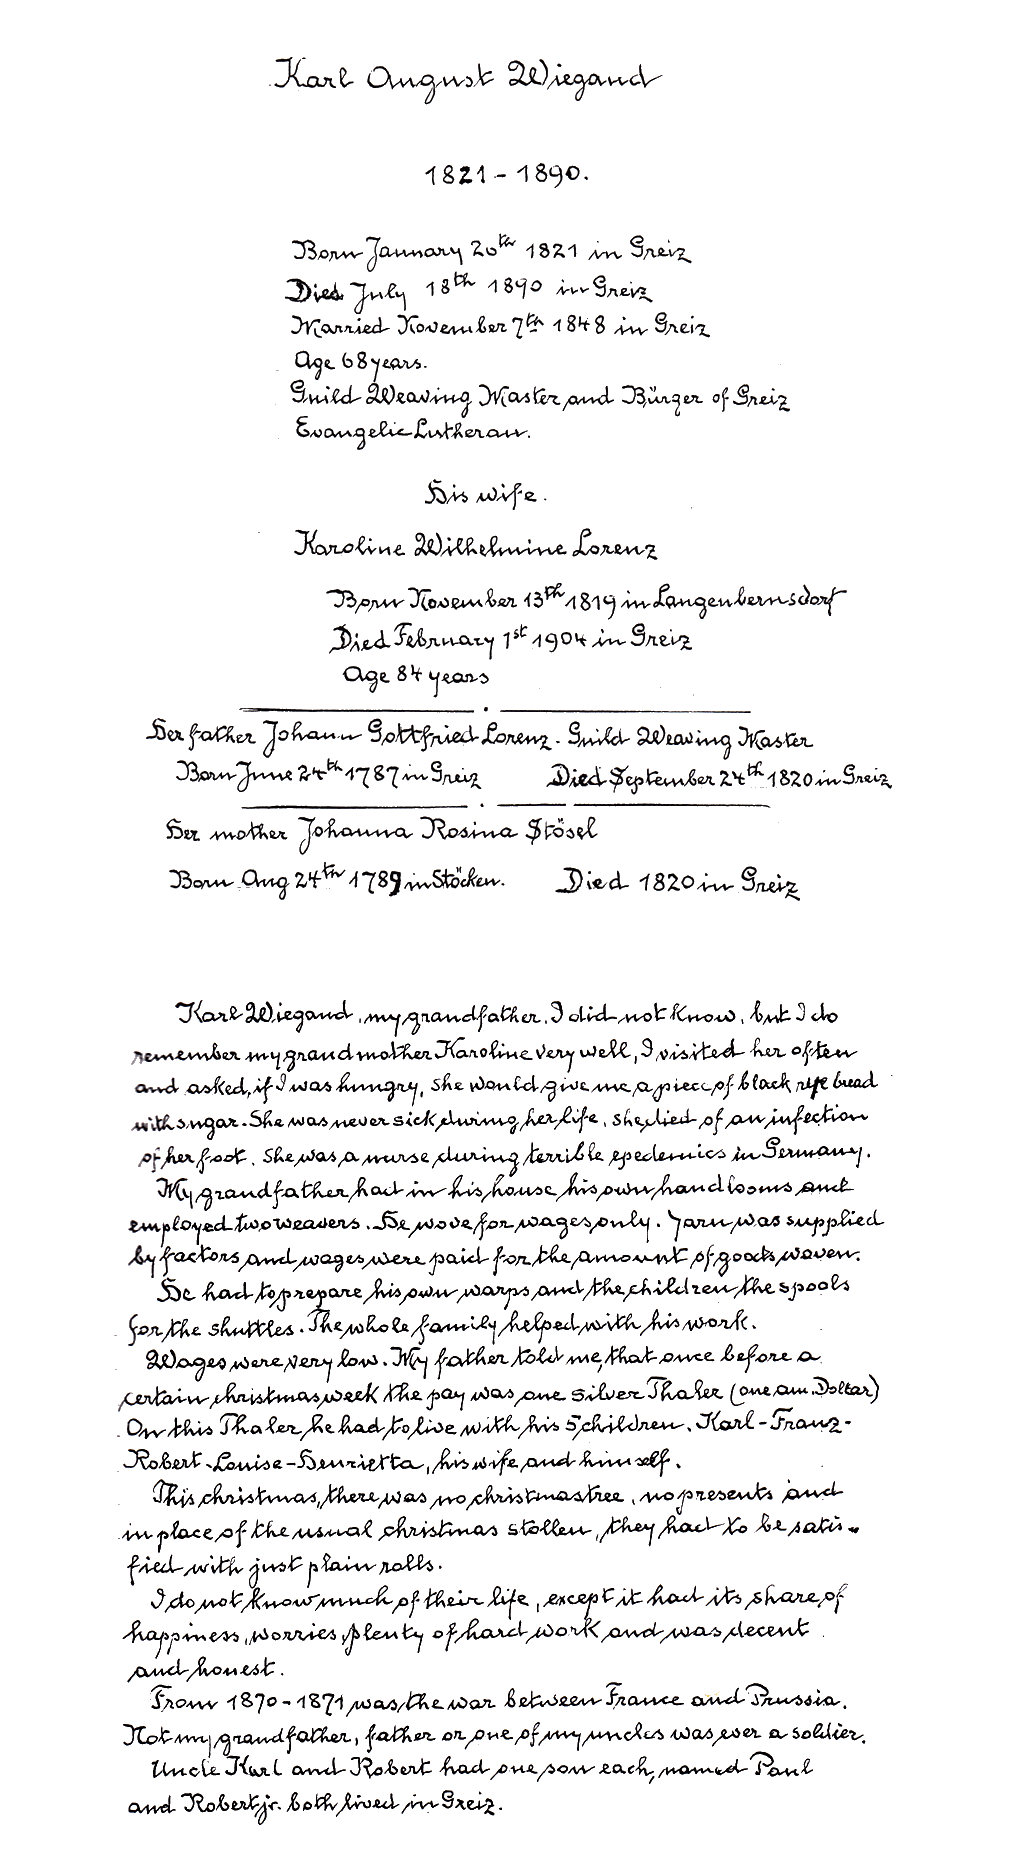 Karl August Wiegand
1821 - 1890.
Born January 20th 1821 in Greiz
Died July 18th 1890 in Greiz
Married November 7th 1848 in Greiz
Age 68 years.
Guild Weaving Master and Bürger of Greiz
Evangelic Lutheran.
His wife.
Karoline Wilhelmine Lorenz
Born November 13th 1819 in Langenbernsdorf
Died February 1st 1904 in Greiz
Age 84 years
Her father Johann Gottfried Lorenz. Guild Weaving Master
Born June 24th 1787 in Greiz Died September 24th 1820 in Greiz
Her mother Johanna Rosina Stösel
Born Aug 24th 1789 in Stöcken. Died 1820 in Greiz
Karl Wiegand, my grandfather, I did not know, but I do
remember my grandmother Karoline very well, I visited her often
and asked, if I was hungry, she would give me a piece of black rye bread
with sugar. She was never sick during her life, she died of an infection
of her foot. She was a nurse during terrible epedemics in Germany.
My grandfather had in his house his own handlooms and
employed two weavers. He wove for wages only. Yarn was supplied
by factors and wages were paid for the amount of goods woven.
He had to prepare his own warps and the children the spools
for the shuttles. The whole family helped with his work.
Wages were very low. My father told me, that once before a
certain christmas week the pay was one silver Thaler (one am. Dollar)
On this Thaler, he had to live with his 5 children. Karl - Franz -
Robert - Louise - Henrietta, his wife and himself.
This christmas, there was no christmastree, no presents and
in place of the usual christmas stollen, they had to be satis-
fied with just plain rolls.
I do not know much of their life, except it had its share of
happiness, worries, plenty of hard work and was decent
and honest.
From 1870 - 1871 was the war between France and Prussia.
Not my grandfather, father or one of my uncles was ever a soldier.
Uncle Karl and Robert had one son each, named Paul
and Robert jr. both lived in Greiz.